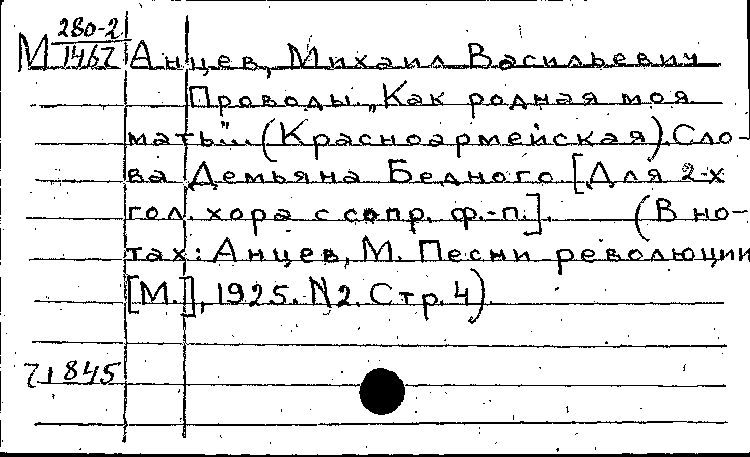 280-2
М 1467 Анцев, Михаил Васильевич
Проводы. „Как родная моя
мать"... (Красноармейская). Сло-
ва Демьяна Бедного [Для 2-х
гол. хора с сопр. ф.-п.]. (В но-
тах: Анцев, М. Песни революции
[М.], 1925. N2. Стр. 4)
71845